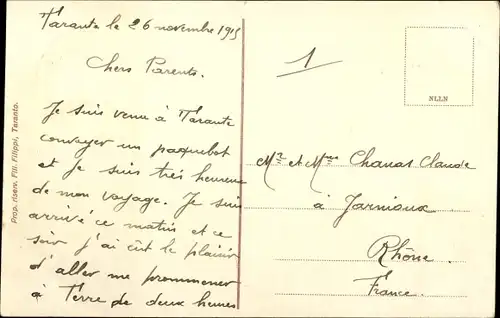 Tarante le 26 novembre 1915
Chers Parents.
Je suis venu à Tarante
convoyer un paquebot
et je suis très heureux
de mon voyage. Je suis
arrivé ce matin et ce
soir j'ai eût le plaisir
d'aller me prommener
à Terre de deux heures
1
NLLN
Mr et Mme Chanas Claude
à Jarnioux
Rhône.
France.
Prop. riserv. Flli Filippi, Taranto.